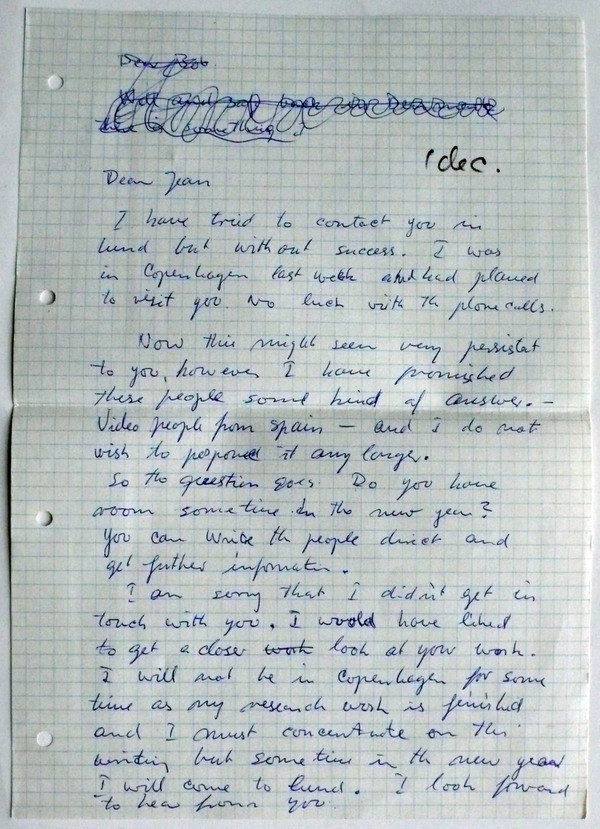 Dear Bob
Well and back in Denmark
something
1 dec.
Dear Jean
I have tried to contact you in
lund but without success. I was
in Copenhagen last week and had planed
to visit you. No luck with th phone calls.
Now this might seem very persistat
to you, however I have promished
these people some kind of answer. –
Video people from Spain – and I do not
wish to pospone it any longer.
So the question goes. Do you have
room sometime in the new year?
You can write th people direct and
get further information.
I am sorry that I didn't get in
touch with you. I would have liked
to get a closer work look at your work.
I will not be in Copenhagen for some
time as my research work is finished
and I must concentrate on this
writing but sometime in th new year
I will come to lund. I look forward
to hear from you